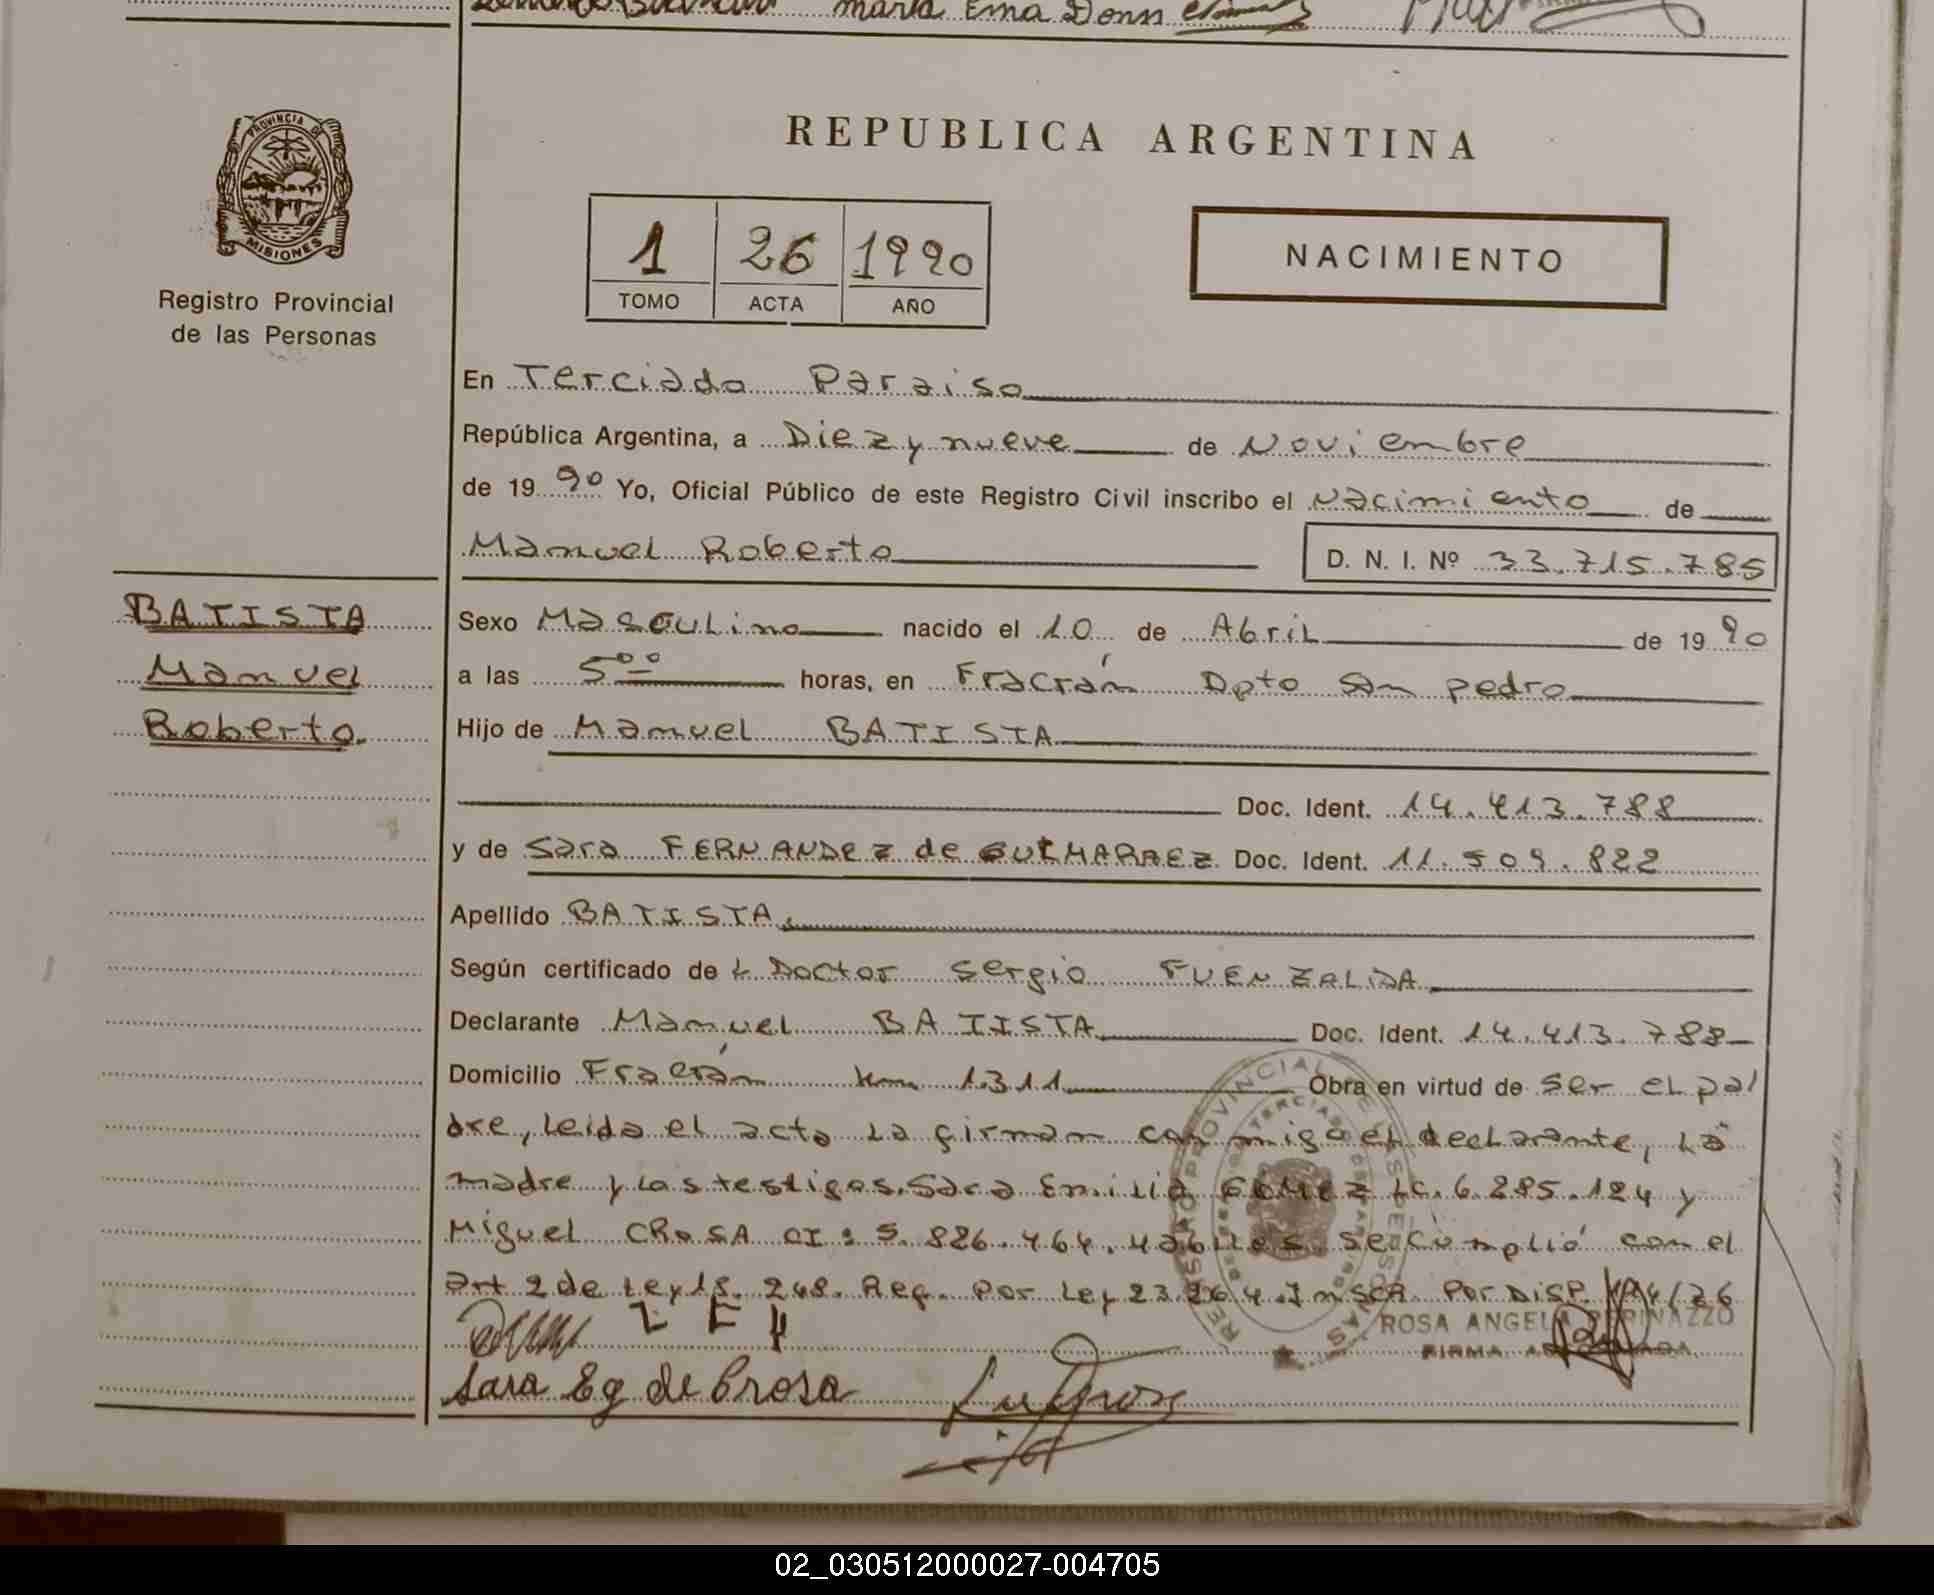 Maria Ema Donn
PROVINCIA DE
MISIONES
Registro Provincial
de las Personas
REPUBLICA ARGENTINA
1 26 1990
TOMO ACTA AÑO
NACIMIENTO
En Terciado Paraiso
República Argentina, a Diez y nueve de Noviembre
de 1990 Yo, Oficial Público de este Registro Civil inscribo el Nacimiento de
Manuel Roberto D. N. I. Nº 33.715.785
BATISTA
Manuel
Roberto.
Sexo Masculino nacido el 10 de Abril de 1990
a las 5 00 horas, en Fracrán Dpto San pedro
Hijo de Manuel BATISTA
Doc. Ident. 14.413.788
y de Sara FERNANDEZ de GUIMARAEZ Doc. Ident. 11.509.822
Apellido BATISTA.
Según certificado de L Doctor Sergio FUENZALIDA
Declarante Manuel BATISTA Doc. Ident. 14.413.788
Domicilio Fracrán Km 1311 Obra en virtud de ser el pa/
dre, leida el acta la firman conmigo el declarante, la
madre y los testigos. Sara Emilia GOMEZ LC. 6.285.124 y
Miguel CROSA CI: 5.826.464. habiles. se cumplió con el
art 2 de Ley 18.248. Reg. Por Ley 23.264. Inscr. Por DISP.
ROSA ANGELA PERINAZZO
FIRMA
Sara Eg de Crosa
02_030512000027-004705